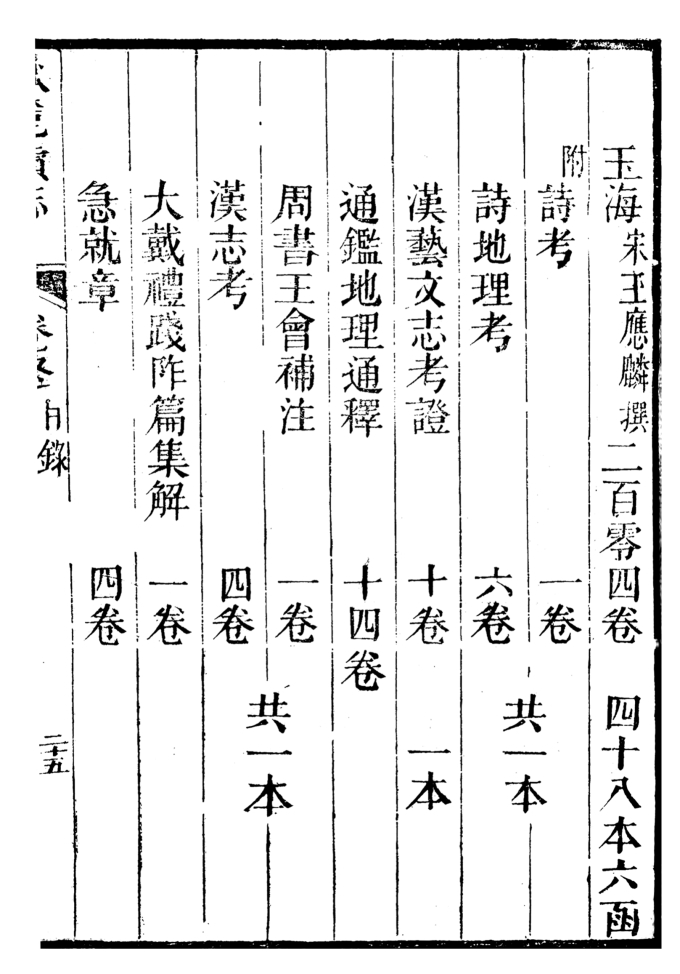 玉海宋王應麟撰二百零四卷 四十八本六函
附詩考 一卷
共一本
詩地理考 六卷
漢藝文志考證 十卷 一本
通鑑地理通釋 十四卷
周書王會補注 一卷
共一本
漢志考 四卷
大戴禮踐阼篇集解 一卷
急就章 四卷
目錄
二十五